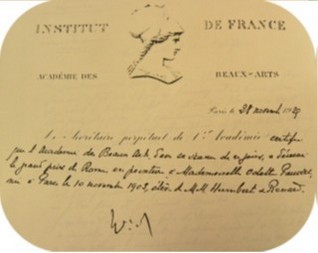 INSTITUT DE FRANCE
ACADÉMIE DES BEAUX-ARTS
Paris le 28 novembre 1929
Le Secrétaire perpétuel de l'Académie certifie
que l'Académie des Beaux Arts, dans sa séance de ce jour, a décerné
le grand prix de Rome en peinture à Mademoiselle Odette Pauvert
née à Paris le 10 novembre 1903, élève de MM Humbert et Renard.